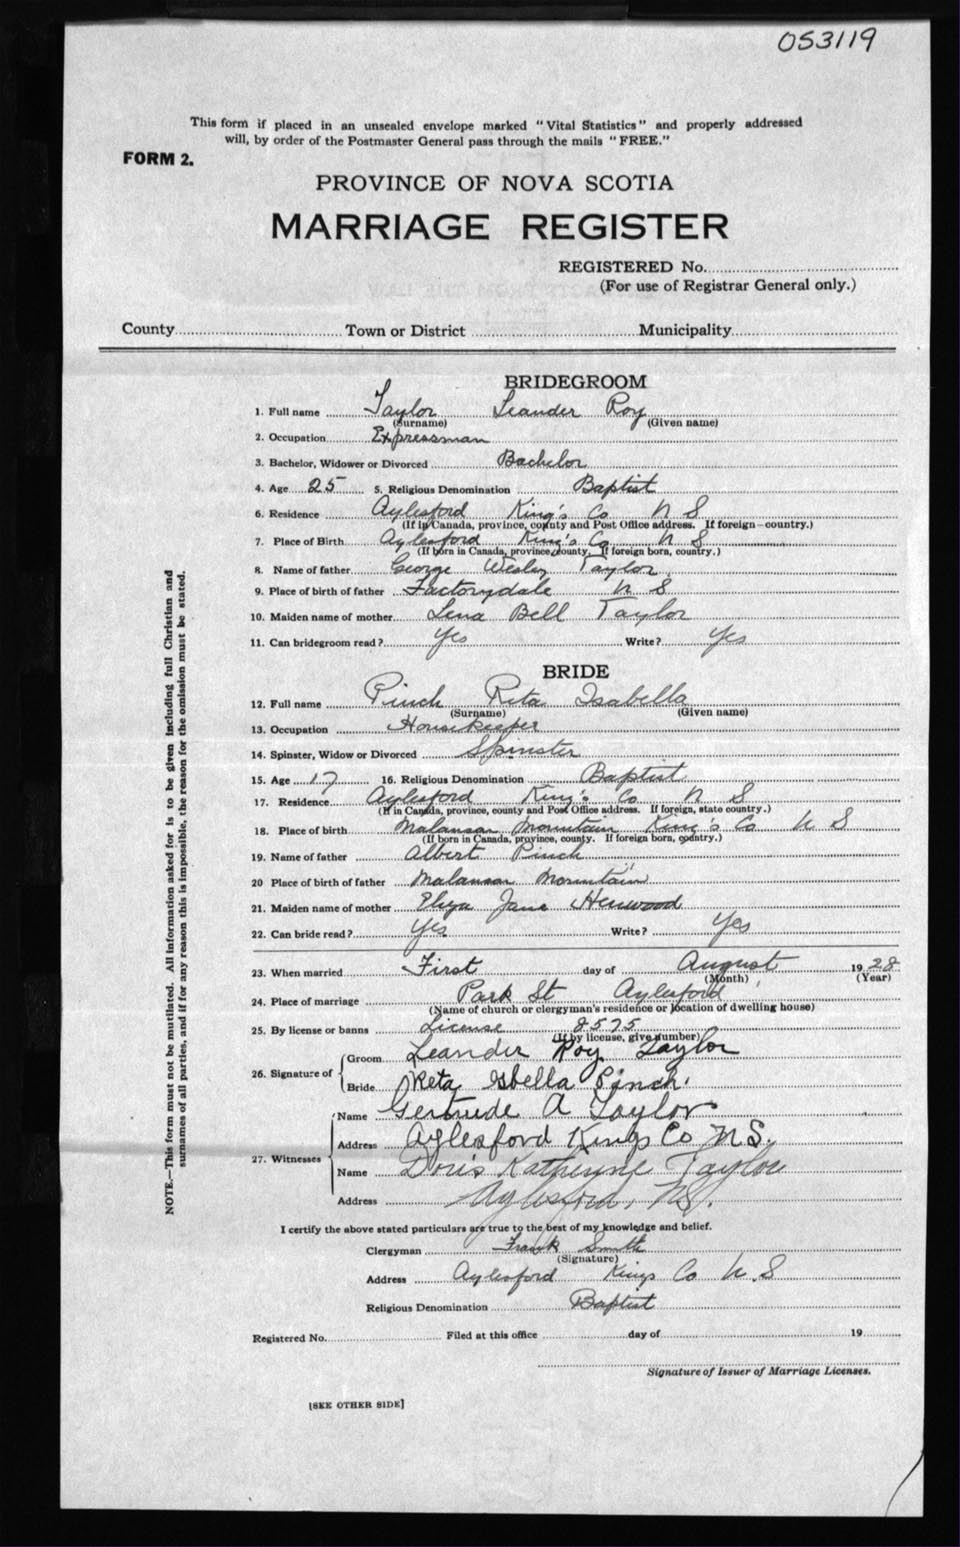 053119
This form if placed in an unsealed envelope marked "Vital Statistics" and properly addressed
will, by order of the Postmaster General pass through the mails "FREE."
FORM 2.
PROVINCE OF NOVA SCOTIA
MARRIAGE REGISTER
REGISTERED No.
(For use of Registrar General only.)
County Town or District Municipality
BRIDEGROOM
1. Full name Taylor Leander Roy
(Surname) (Given name)
2. Occupation Expressman
3. Bachelor, Widower or Divorced Bachelor
4. Age 25 5. Religious Denomination Baptist
6. Residence Aylesford King's Co N S
(If in Canada, province, county and Post Office address. If foreign—country.)
7. Place of Birth Aylesford King's Co N S
(If born in Canada, province county, If foreign born, country.)
8. Name of father George Wesley Taylor
9. Place of birth of father Factorydale N S
10. Maiden name of mother Lena Bell Taylor
11. Can bridegroom read? Yes Write? Yes
BRIDE
12. Full name Pinch Rita Isabella
(Surname) (Given name)
13. Occupation Housekeeper
14. Spinster, Widow or Divorced Spinster
15. Age 17 16. Religious Denomination Baptist
17. Residence Aylesford King's Co N S
(If in Canada, province, county and Post Office address. If foreign, state country.)
18. Place of birth Malansan Mountain King's Co N S
(If born in Canada, province, county. If foreign born, country.)
19. Name of father Albert Pinch
20 Place of birth of father Malansan Mountain
21. Maiden name of mother Eliza Jane Henwood
22. Can bride read? Yes Write? Yes
23. When married First day of August 1928
(Month) (Year)
24. Place of marriage Park St Aylesford
(Name of church or clergyman's residence or location of dwelling house)
25. By license or banns License 8575
(If by license, give number)
26. Signature of
Groom Leander Roy Taylor
Bride Reta Isbella Pinch.
27. Witnesses
Name Gertrude A Taylor
Address Aylesford Kings Co N.S.
Name Doris Katheryne Taylor
Address Aylesford, N.S.
I certify the above stated particulars are true to the best of my knowledge and belief.
Clergyman Frank Smith
(Signature)
Address Aylesford Kings Co N.S
Religious Denomination Baptist
Registered No. Filed at this office day of 19
Signature of Issuer of Marriage Licenses.
[SEE OTHER SIDE]
NOTE.—This form must not be mutilated. All information asked for is to be given including full Christian and
surnames of all parties, and if for any reason this is impossible, the reason for the omission must be stated.